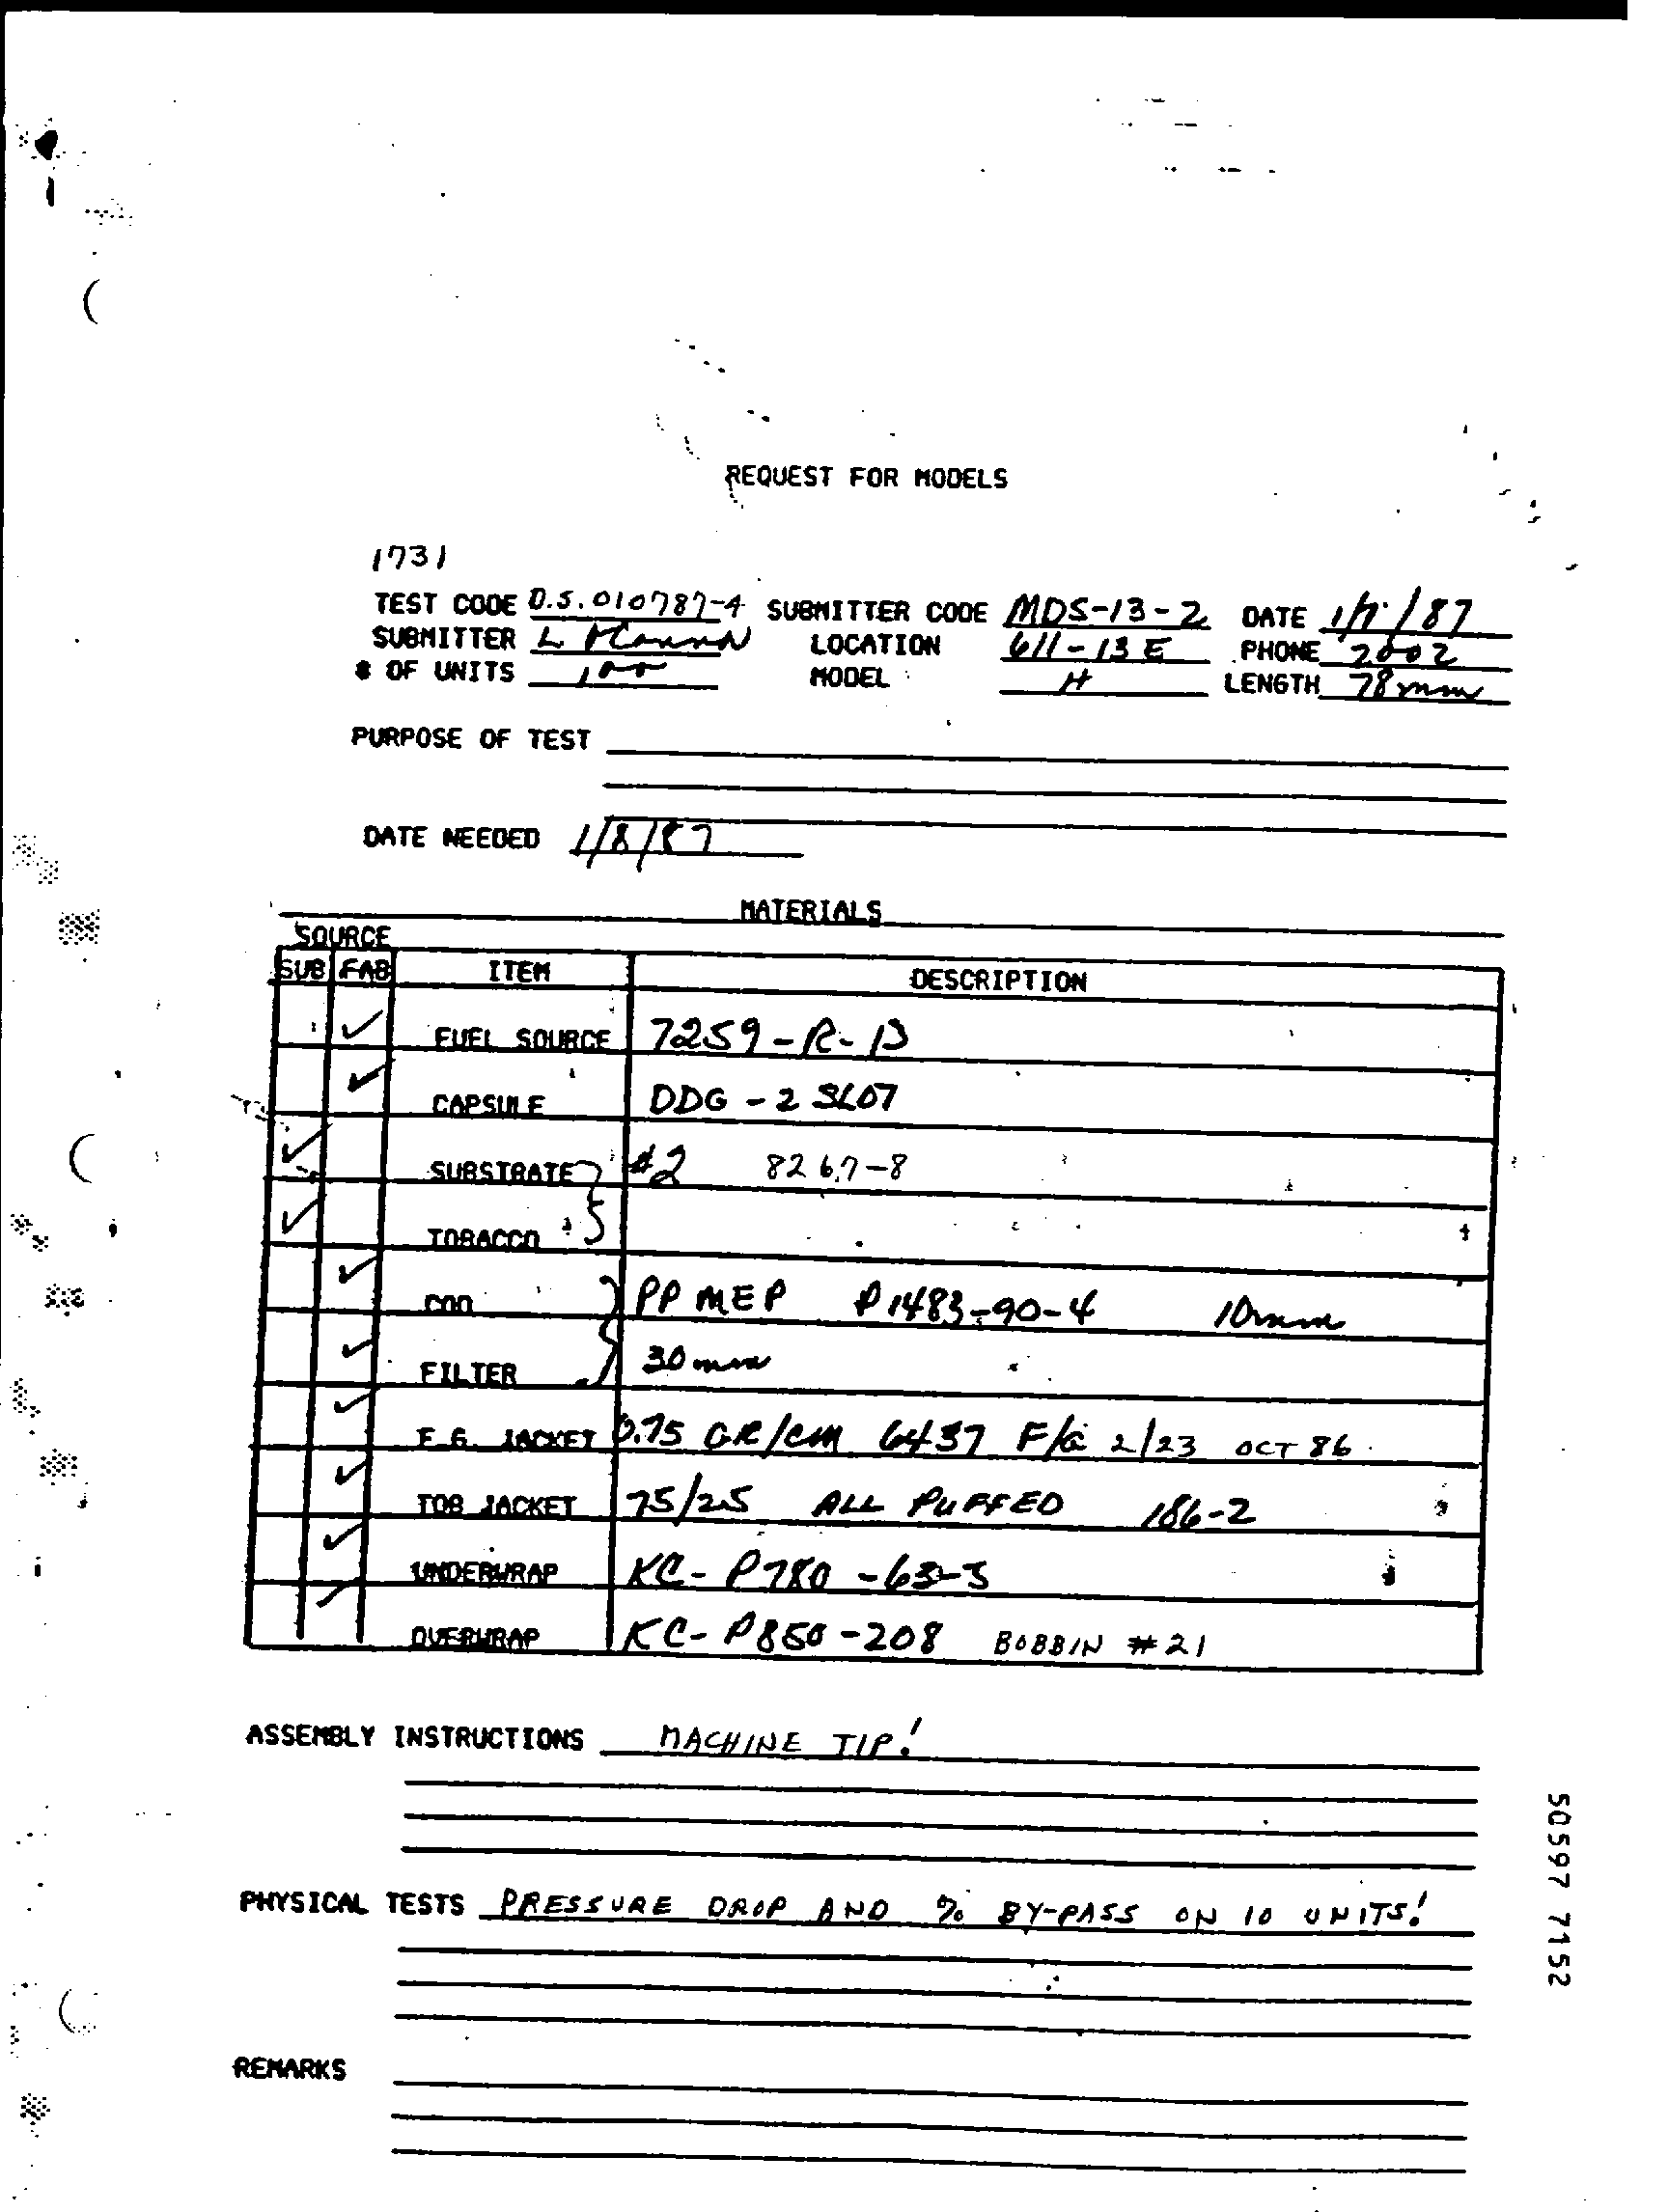 REQUEST FOR MODELS
1731
TEST CODE D.S.010787-4 SUBMITTER CODE MDS-13-2 DATE 1/7/87
SUBMITTER L LOCATION 611-13E PHONE 2002
# OF UNITS 100 MODEL H LENGTH 78mm
PURPOSE OF TEST
DATE NEEDED 1/8/87
MATERIALS
SOURCE
SUB FAB ITEM DESCRIPTION
✓ FUEL SOURCE 7259-R-B
✓ CAPSULE DDG - 2 SLOT
✓ SUBSTRATE #2 8267-8
✓ TOBACCO
✓ COD PP MEP P1483-90-4 10mm
✓ FILTER 30mm
✓ F.G. JACKET 0.75 GR/CM 6437 F/G 2/23 OCT 86
✓ TOB JACKET 75/25 ALL PUFFED 186-2
✓ UNDERWRAP KC-P780-63-5
✓ OVERWRAP KC-P850-208 BOBBIN #21
ASSEMBLY INSTRUCTIONS MACHINE TIP!
PHYSICAL TESTS PRESSURE DROP AND % BY-PASS ON 10 UNITS!
REMARKS
50597 7152